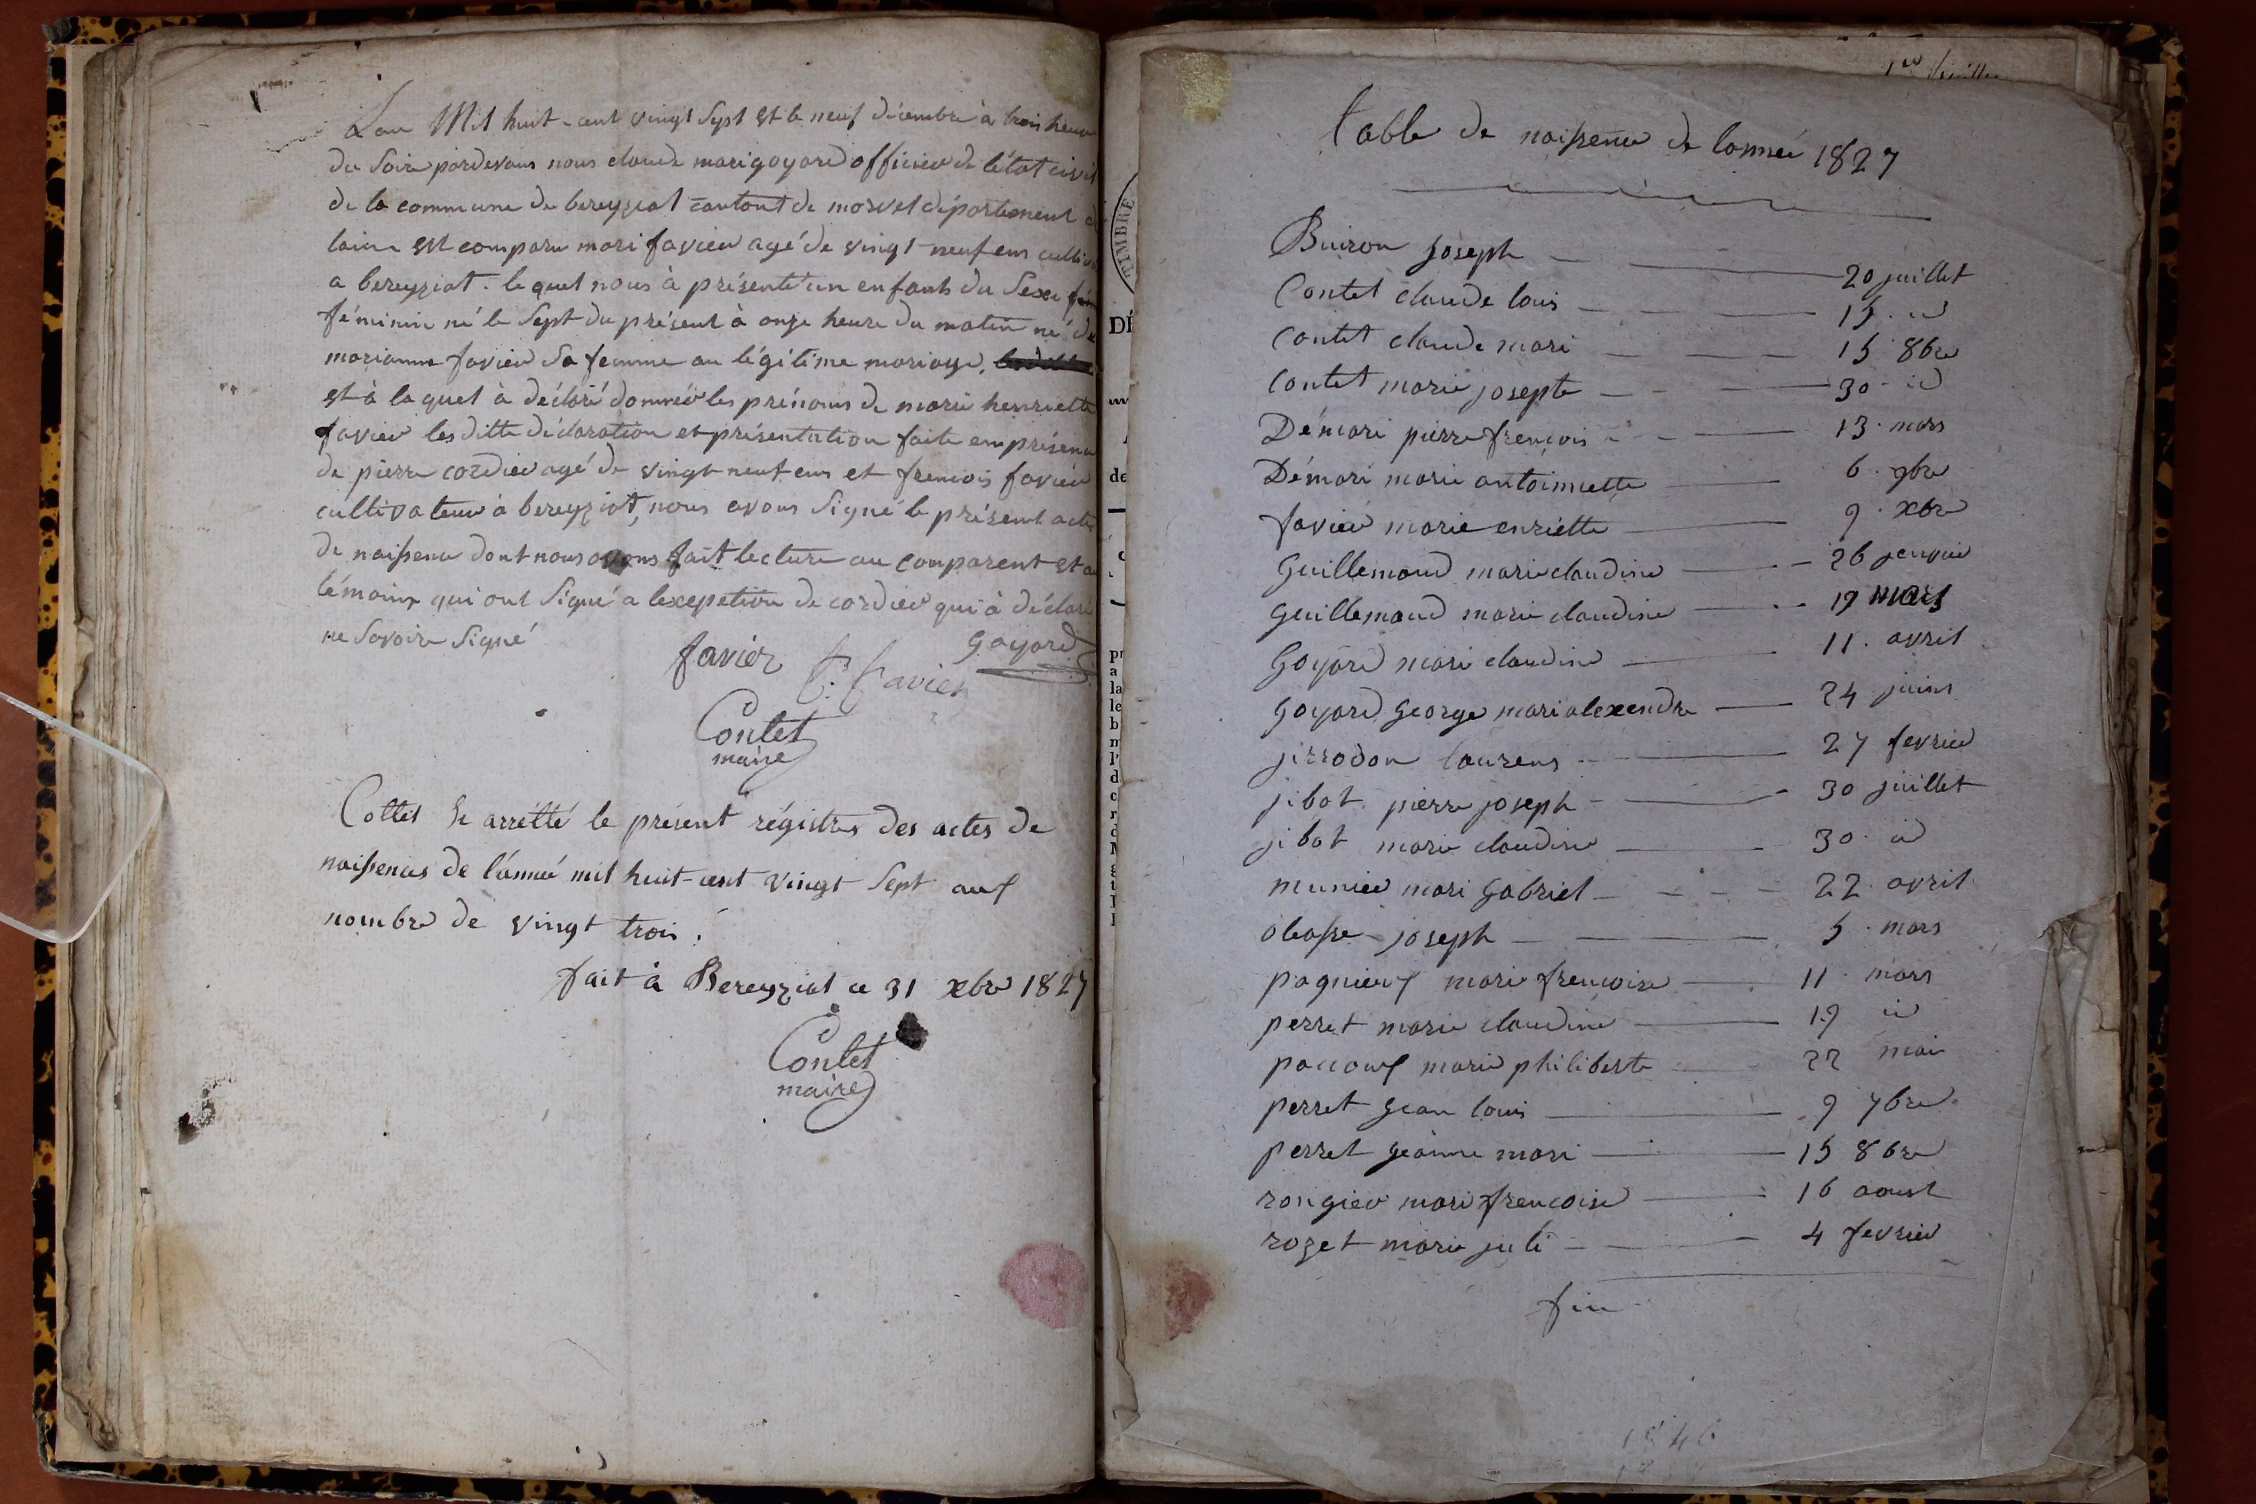 Lan Mil huit-cent vingt sept et le neuf décembre à trois heure
du soire pardevans nous claude mari goyard officier de l'étot civil
de la commune de bereyziat cantont de morvel département de
laine est comparu mari favier agé de vingt-neuf ens cultiv
a bereyziat. le quel nous à présenté un enfants du sexe fém
féminin né le sept du présent à onze heure du matin né de
marianne favier sa femme au légitime mariage.
et à la quel à déclaré donnér les prénoms de marie henriette
favier les ditte déclaration et présentation faite en présence
de pierre cordier agé de vingt neuf ens et frencois favier
cultivateur à bereyziat, nous avons signé le présent acte
de naissence dont nous avons fait lecture au comparent et au
témoins qui ont signé a lexepetion de cordier qui à déclaré
ne savoire signé
favier f. favier goyard
Contet
maire
Collet et arrétté le présent régistres des actes de
naissences de l'année mil huit-cent vingt sept au
nombre de vingt trois.
fait à Bereyziat ce 31 xbre 1827
Contet
maire
TIMBRE
DÉ
de
table de naissence de lannée 1827
Buiron joseph 20 juillet
Contet claude louis 15. id
Contet claude mari 15 8bre
Contet marie josepte 30. id
Démari pierre frencois 13. mars
Démari marie antoinnette 6. 9bre
favier marie enriette 9. xbre
Guillemaud marie claudine 26 jenvier
guillemaud marie claudine 19 mars
Goyard mari claudine 11. avril
goyard george mari alexendre 24 juins
jirrodon laurens 27 fevrier
jibot pierre joseph 30 juillet
jibot marie claudine 30. id
munier mari gabriel 22. avril
obasse joseph 5. mars
pagnieux marie frencoise 11. mars
perret marie claudine 19 id
paccoux marie philiberte 22 mai
perret jean louis 9 7bre
perret jeanne mari 15 8bre
rongier mari frencoise 16 aoust
rozet marie juli 4 fevrier
fin
1846